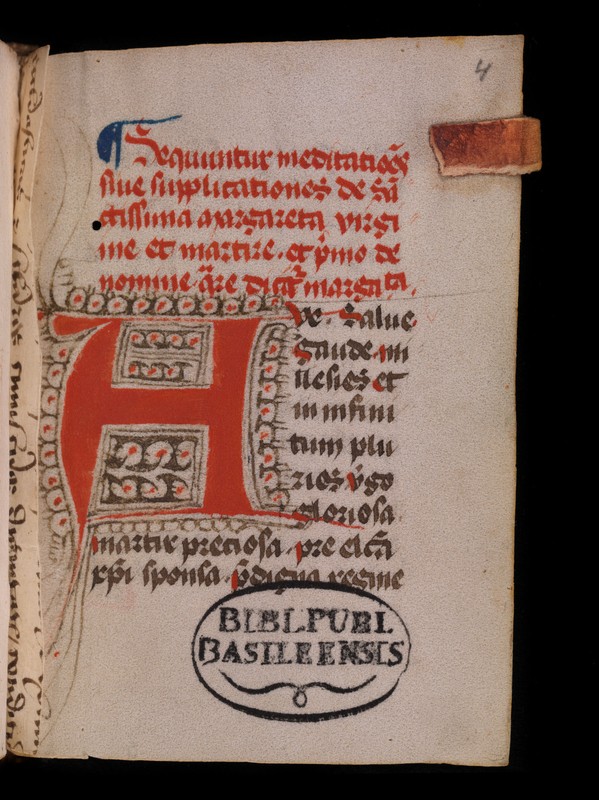 4
¶ Sequuntur meditatiões
siue supplicationes de sã
ctissima margareta virgi
ne et martire. et p̃mo de
nomine. q̃re dicit᷑ margata.
Aue. Salue
gaude. mi
llesies et
in infini
tum plu
ries v̾go
gloriosa
martir preciosa. pre elc̃a
xp̃i sponsa. p̃digna regine
BIBL. PUBL.
BASILEENSIS